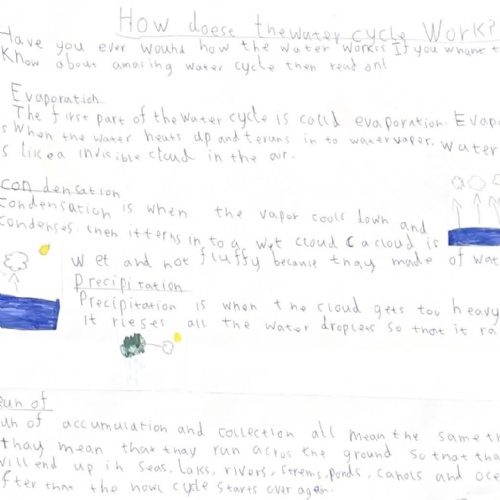 How doese thewater cycle Work?
Have you ever wouhd how the water works If you whant t
Know about amazing water cycle then read on!
Evaporation
The first part of the water cycle is colld evaporation. Evap
s when the water heats up and terans in to watervaper. water
s like a invisible cloud in the air.
condensation
condensation is when the vapor cools down and
condenses. then itterns in to a wet cloud C a cloud is
wet and not fluffy because thay made of wat
Precipitation
Precipitation is when the cloud gets too heavy
It rleses all the water droplets so that it ra
un of
un of accumulation and collection all mean the same th
thay mean that thay run across the ground so that tha
will end up in seas, laks, rivers, strems, ponds, canols and oce
fter that the howl cycle starts over agen.